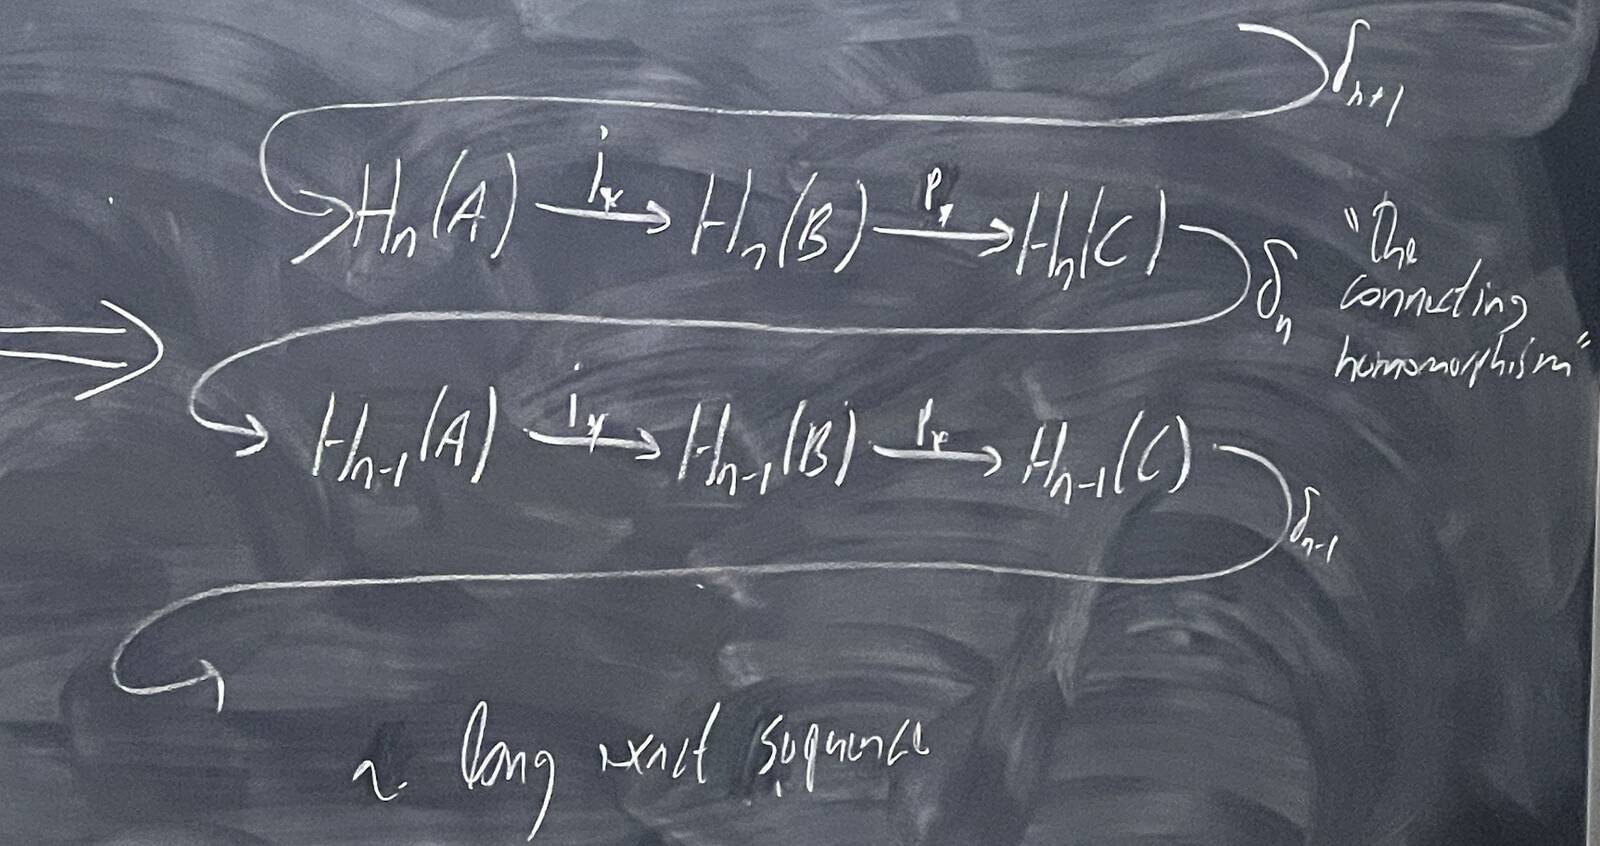 δₙ₊₁
Hₙ(A) —i_*→ Hₙ(B) —p_*→ Hₙ(C) δₙ
"the
connecting
homomorphism"
⇒
Hₙ₋₁(A) —i_*→ Hₙ₋₁(B) —p_*→ Hₙ₋₁(C) δₙ₋₁
a long exact sequence